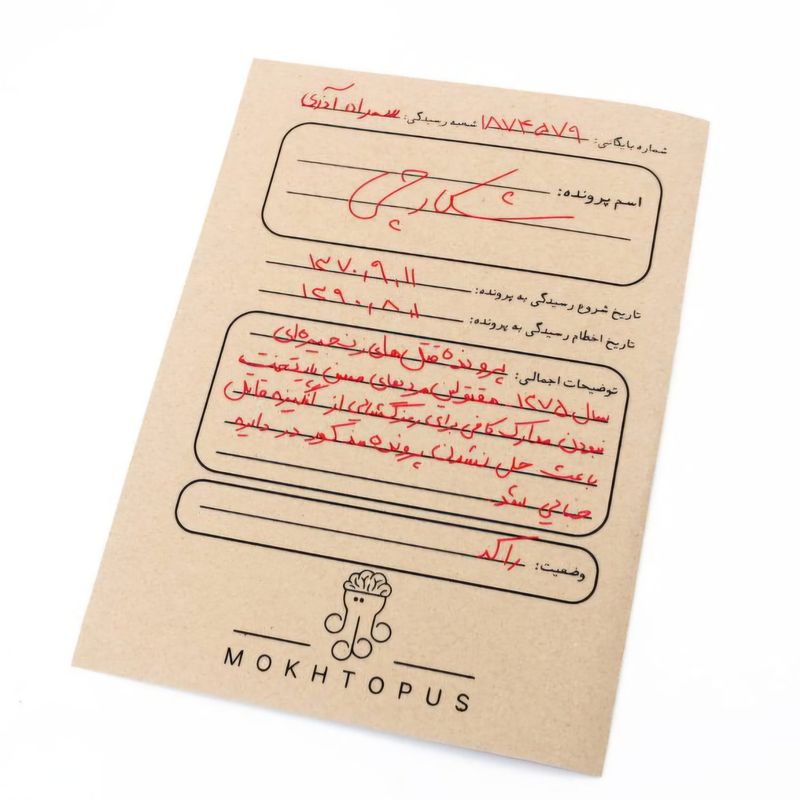 شماره بایگانی: ۱۸۷۴۵۷۹ شعبه رسیدگی: سهراب آذری
اسم پرونده:
شکارچی
تاریخ شروع رسیدگی به پرونده: ۱۳۷۰,۹,۱۱
تاریخ اخطام رسیدگی به پرونده: ۱۳۹۰,۸,۱
توضیحات اجمالی: پرونده قتل های زنجیره‌ای
سال ۱۳۷۵ مقتولین مردهای مسن پایتخت
نبودن مدارک کافی برای رمزگشایی از انگیزه قاتل
باعث حل نشدن پرونده مذکور در دایره
جنایی شد.
وضعیت: راکد
MOKHTOPUS